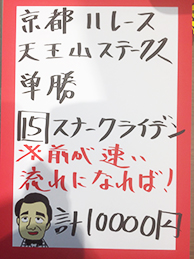 京都11レース
天王山ステークス
単勝
15 スナークライデン
※前が速い
流れになれば!
計10000円